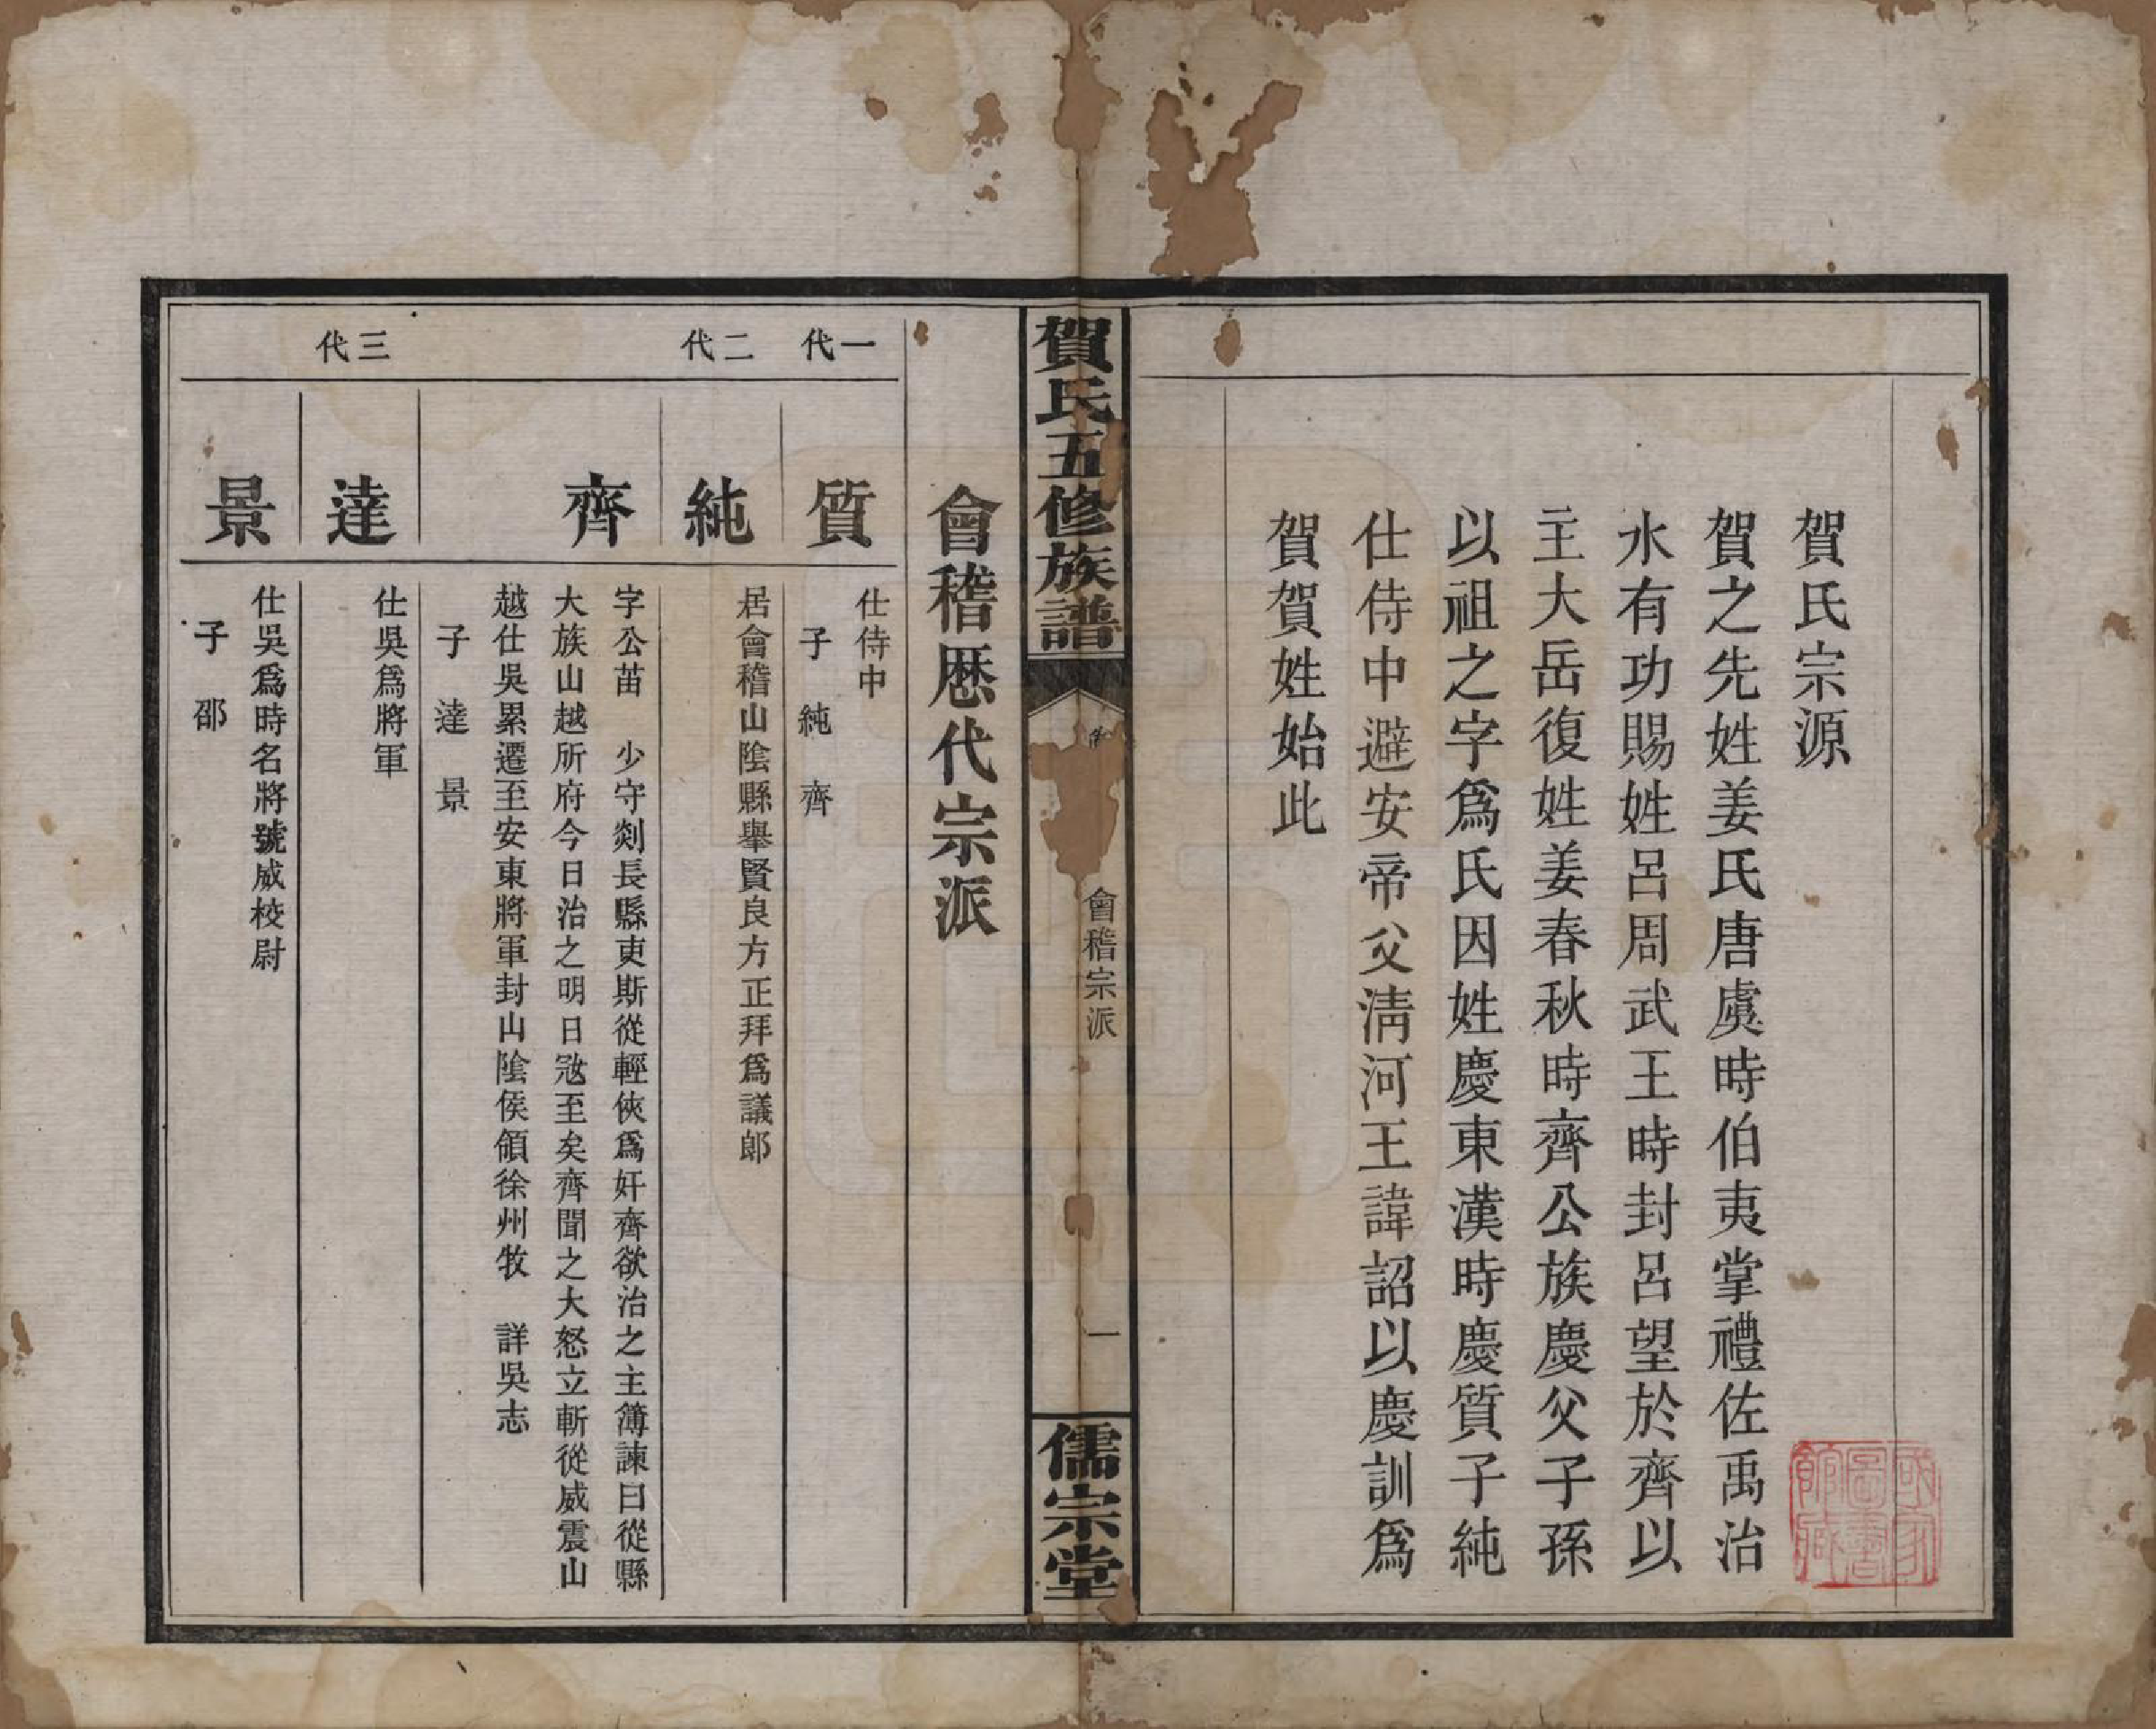 賀氏宗源
賀之先姓姜氏唐虞時伯夷掌禮佐禹治
水有功賜姓呂周武王時封呂望於齊以
主大岳復姓姜春秋時齊公族慶父子孫
以祖之字爲氏因姓慶東漢時慶質子純
仕侍中避安帝父清河王諱詔以慶訓爲
賀賀姓始此
國家圖書館藏
賀氏五修族譜
會稽宗派
一
儒宗堂
會稽歷代宗派
一代
質
仕侍中
子 純 齊
二代
純
居會稽山陰縣舉賢良方正拜爲議郎
齊
字公苗 少守剡長縣吏斯從輕俠爲奸齊欲治之主簿諫曰從縣
大族山越所府今日治之明日寇至矣齊聞之大怒立斬從威震山
越仕吳累遷至安東將軍封山陰侯領徐州牧 詳吳志
子 達 景
三代
達
仕吳爲將軍
景
仕吳爲時名將號威校尉
子 邵